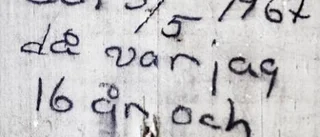 15/5 1967
då var jag
16 år och